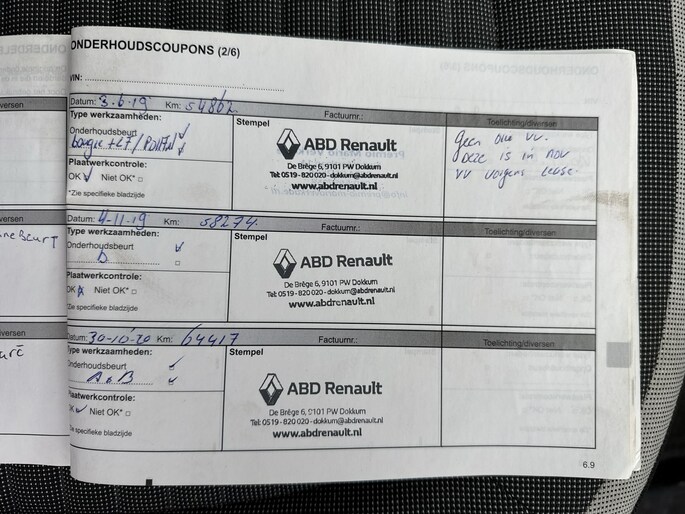 ONDERHOUDSCOUPONS (2/6)
VIN:
Datum: 3-6-19 Km: 54862 Factuurnr.: Toelichting/diversen
Type werkzaamheden:
Onderhoudsbeurt
+ LF / Pollen
Plaatwerkcontrole:
OK Niet OK*
*Zie specifieke bladzijde
Stempel
ABD Renault
De Brêge 6, 9101 PW Dokkum
Tel: 0519 - 820 020 - dokkum@abdrenault.nl
www.abdrenault.nl
Geen olie vv.
Deze is in nov
vv volgens lease.
Datum: 4-11-19 Km: 58274. Factuurnr.: Toelichting/diversen
Type werkzaamheden:
Onderhoudsbeurt
Plaatwerkcontrole:
OK Niet OK*
*Zie specifieke bladzijde
Stempel
ABD Renault
De Brêge 6, 9101 PW Dokkum
Tel: 0519 - 820 020 - dokkum@abdrenault.nl
www.abdrenault.nl
Datum: 30-10-20 Km: 64417 Factuurnr.: Toelichting/diversen
Type werkzaamheden:
Onderhoudsbeurt
A B
Plaatwerkcontrole:
OK Niet OK*
Zie specifieke bladzijde
Stempel
ABD Renault
De Brêge 6, 9101 PW Dokkum
Tel: 0519 - 820 020 - dokkum@abdrenault.nl
www.abdrenault.nl
6.9